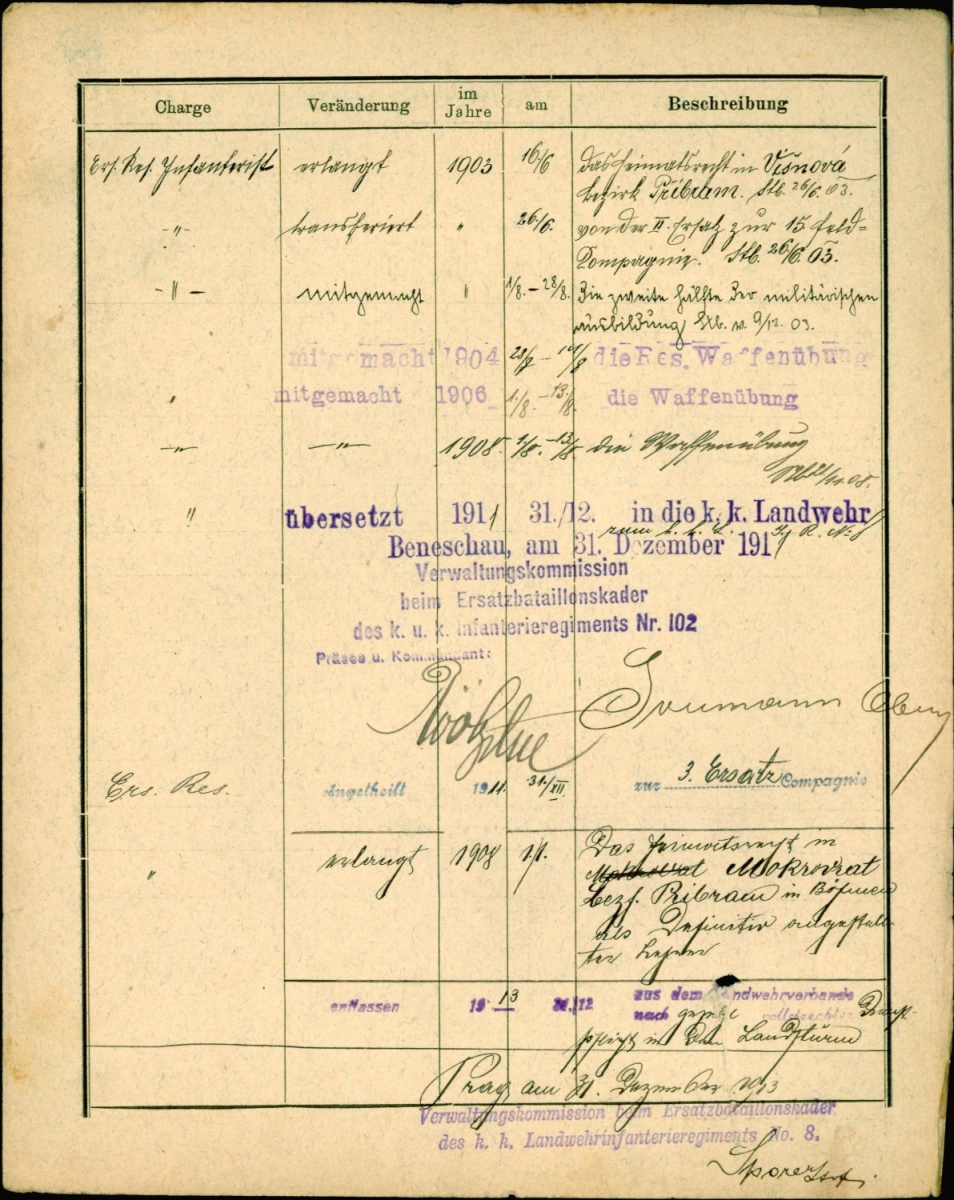 Charge Veränderung im Jahre am Beschreibung
Ers. Res. Infanterist erlangt 1903 16/6 das Heimatsrecht in Višnová
Bezirk Příbram. Stb. 26/6. 03.
-"- transferiert " 26./6. von der II. Ersatz zur 15 Feld=
Kompagnie. Stb. 26/6. 03.
-"- mitgemacht " 1/8. – 28/8. Die zweite Hälfte der militärischen
Ausbildung Stb. v. 9/12. 03.
mitgemacht 1904 die Res. Waffenübung
" mitgemacht 1906 1./8. – 13./8. die Waffenübung
-"- -"- 1908. 1/8. – 13/8 die Waffenübung
" übersetzt 1911 31./12. in die k. k. Landwehr
zum k. k. L. I. R. No 8
Beneschau, am 31. Dezember 1911
Verwaltungskommission
beim Ersatzbataillonskader
des k. u. k. Infanterieregiments Nr. 102
Präses u. Kommandant:
Ers. Res. Angetheilt 1911 31./XII. zur 3. Ersatz Compagnie
" erlangt 1908 1/1. Das Heimatsrecht in
Mokrovrat
Bezk. Pribram in Böhmen
als Definitiv angestell-
ter Lehrer
entlassen 1913 31./12 aus dem Landwehrverbande
nach gesetzl. vollstreckter Dienst-
pflicht in den Landsturm
Prag am 31. Dezember 1913
Verwaltungskommission beim Ersatzbataillonskader
des k. k. Landwehrinfanterieregiments No. 8.